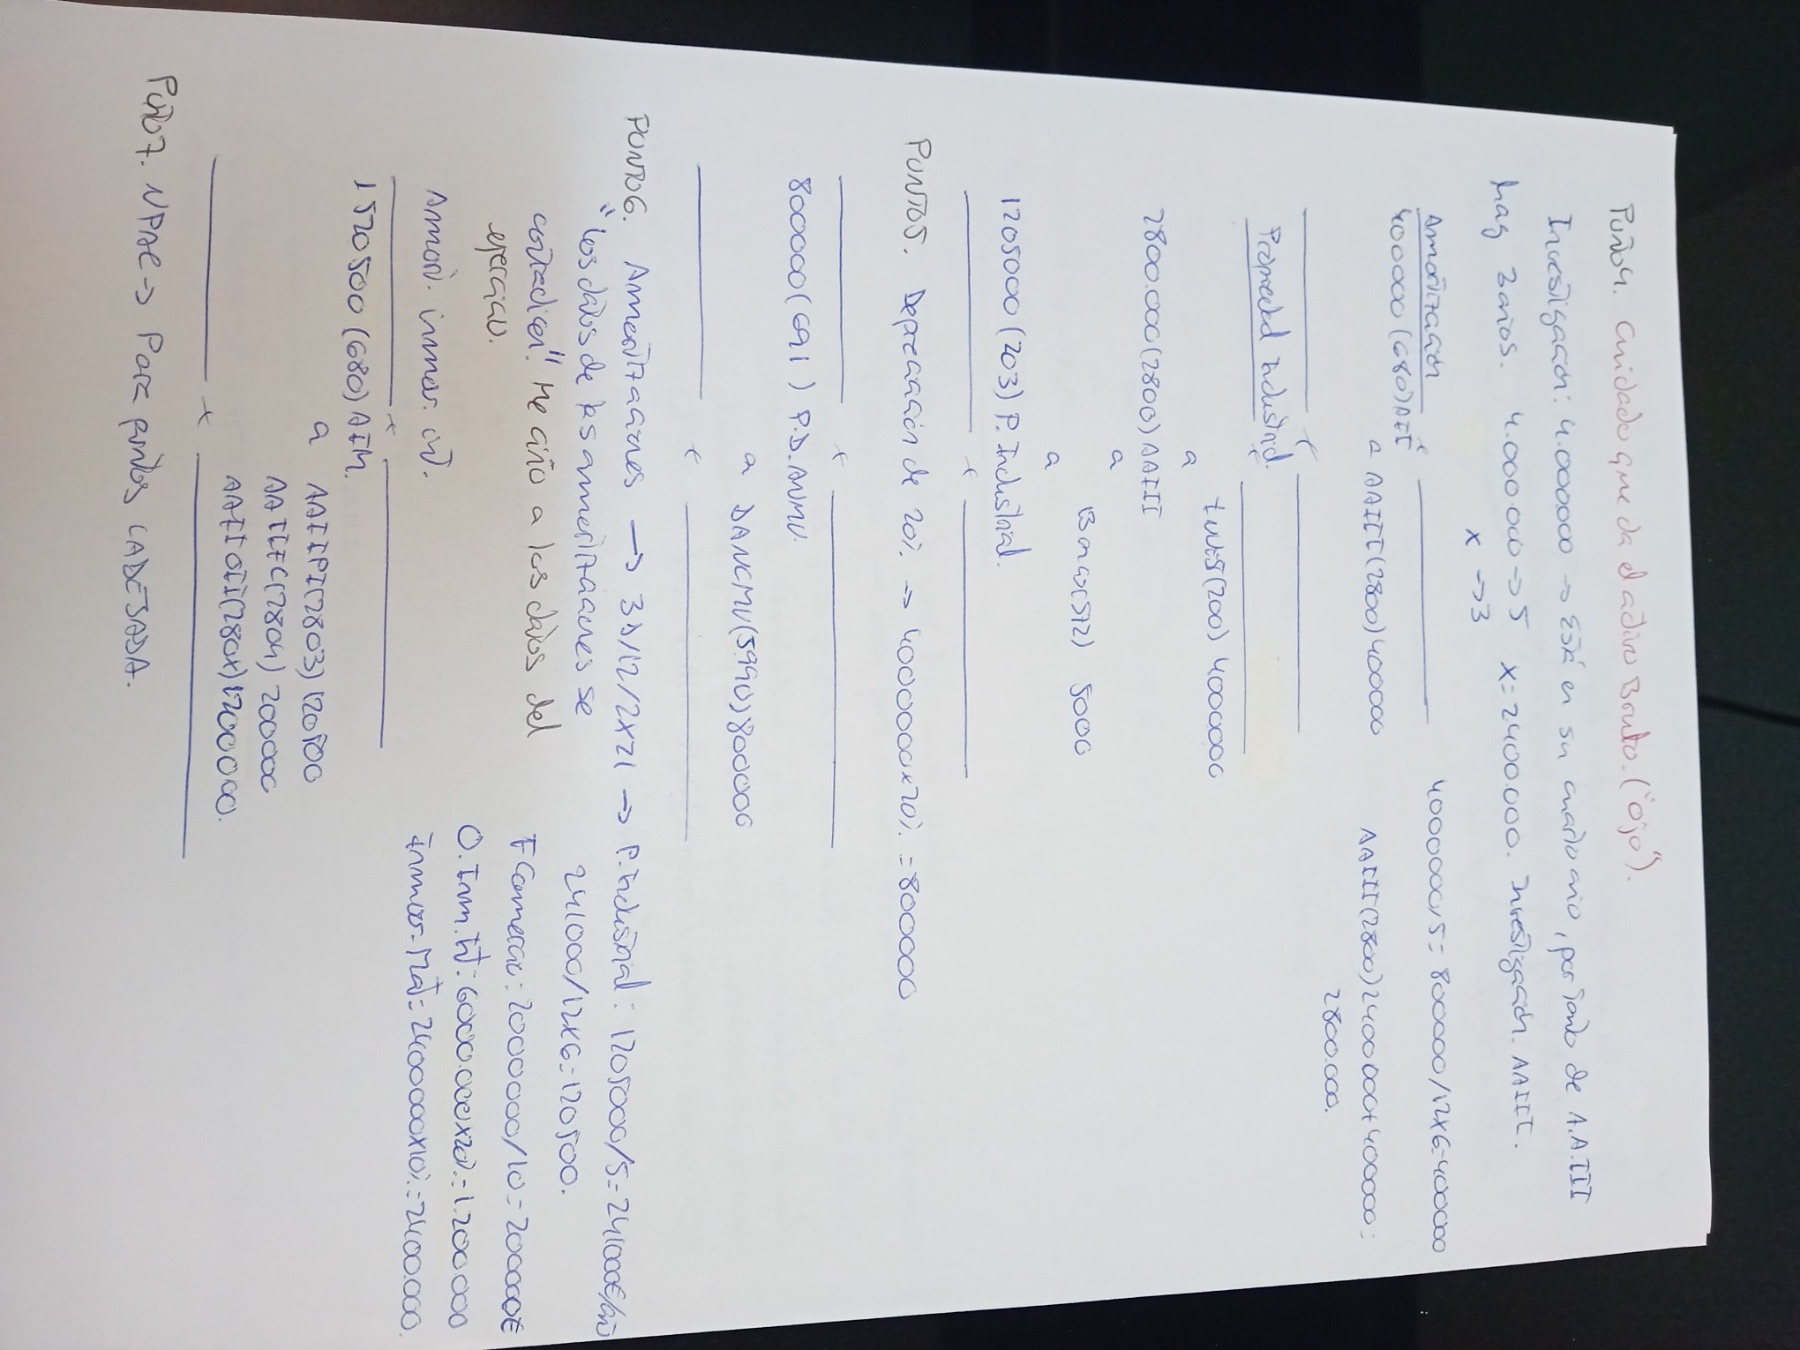 Punto 4. Cuidado que da el activo Bruto. ("Ojo").
Investigación: 4.000.000 -> Está en su cuarto año, por tanto de A.A.III
hay 3 años. 4.000.000 -> 5 x = 2400.000. Investigación. AAIII.
x -> 3
Amortización
400000 (680) AII
a AAIII (2800) 400000
4000000/5 = 800000/12x6 = 400000
AAIII (2800) 2400000 + 400000 =
2800.000.
Propiedad Industrial.
a (200) 4000000
2800.000 (2800) AAIII
a
Bancos (572) 5000
a
1205000 (203) P. Industrial.
PUNTO 5. Depreciación de 20% -> 4000000x20% = 800000
800000 (691) P.D. ANMV.
a DANCMV (5990) 800000
PUNTO 6. Amortizaciones -> 31/12/2X21 -> P. Industrial: 1205000/5 = 241000€/año
"Los datos de las amortizaciones se
contradicen" Me ciño a los datos del
ejercicio.
241000/12x6 = 120500.
F Comerc: 2000000/10 = 200000€
O. Inm. Int: 6000.000x20% = 1.200 000
Inmov. Mat = 24000000x10% = 2400.000.
Amort. inmov. int.
1520500 (680) AIM.
a AAIIPI (2803) 120500
AAIFC (2804) 200000
AAIOII (280X) 1200000.
Punto 7. NPAE -> Para fondos CADESADA.